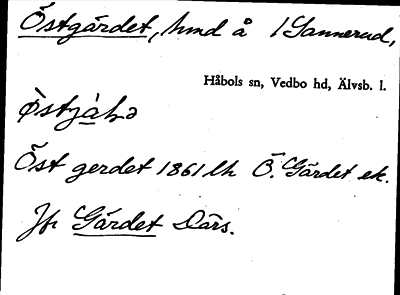 Östgärdet, hmd å 1 Sannerud,
Håbols sn, Vedbo hd, Älvsb. l.
Öst gerdet 1861 lh Ö. Gärdet ek.
Jfr Gärdet Därs.